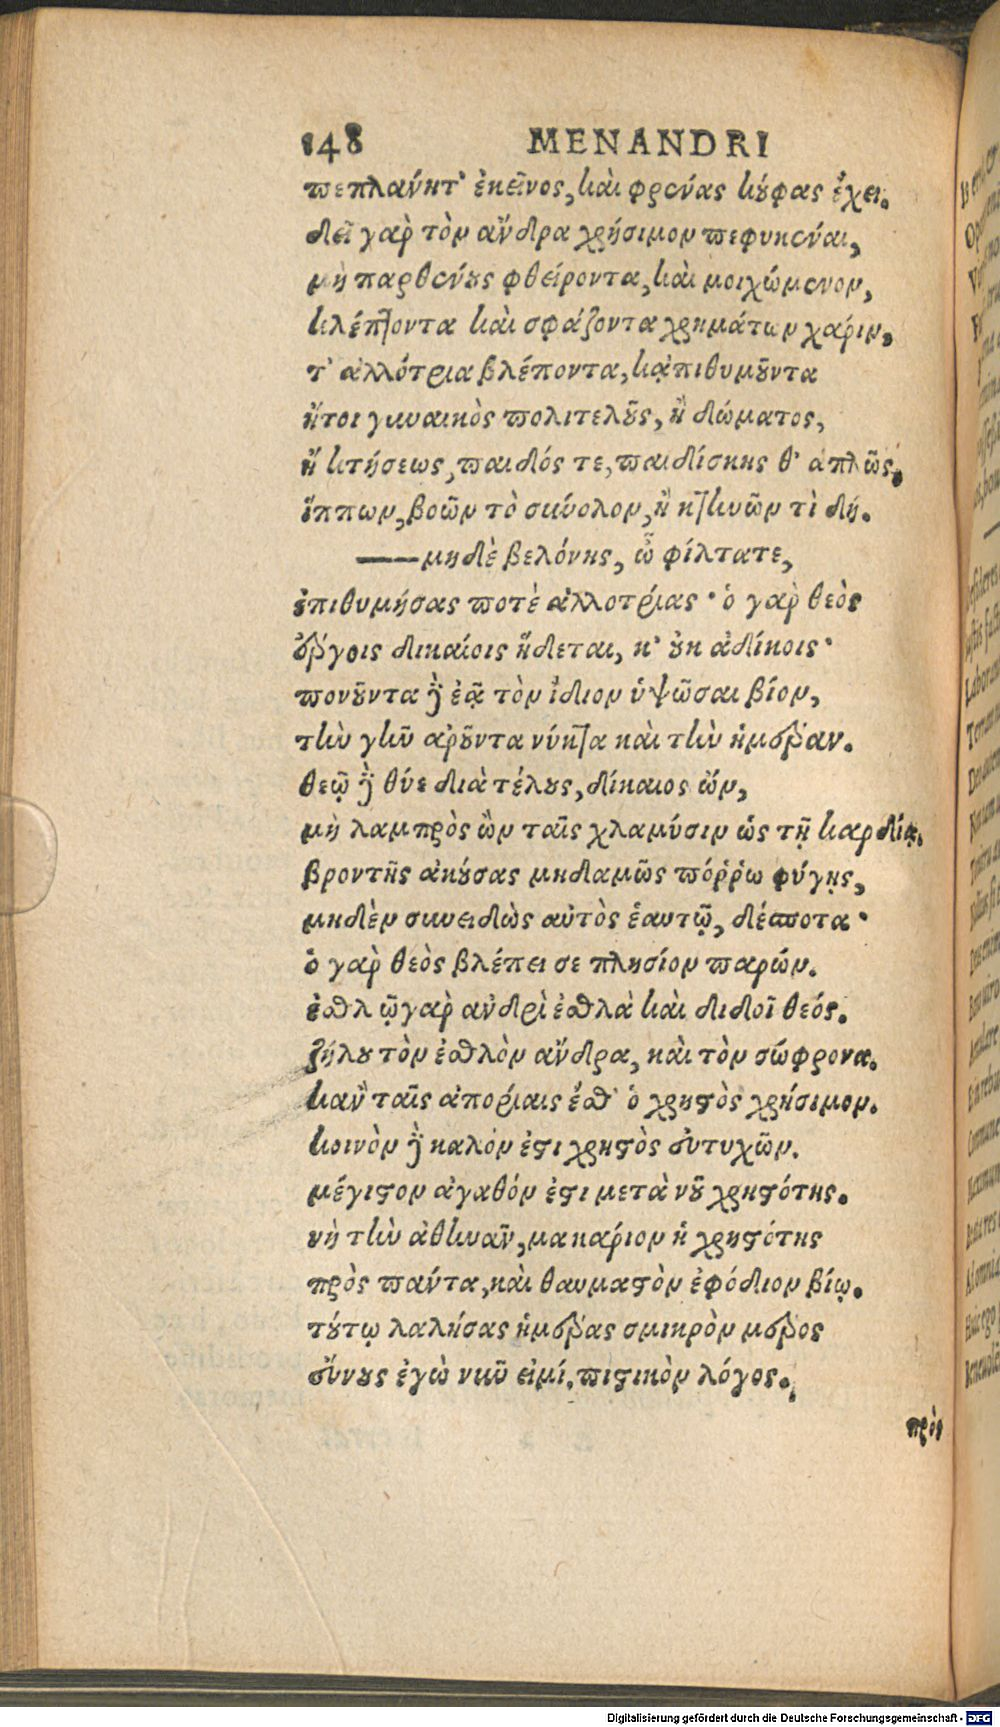 148 MENANDRI
πεπλαύνητ᾽ ἐκεῖνος, καὶ φρένας κούφας ἔχει.
δεῖ γὰρ τὸν ἄνδρα χρήσιμον πεφυκέναι,
μὴ παρθένους φθείροντα, καὶ μοιχώμενον,
κλέπτοντα καὶ σφάζοντα χρημάτων χάριν,
τ᾽ ἀλλότρια βλέποντα, κἀπιθυμοῦντα
ἤτοι γυναικὸς πολιτελοῦς, ἢ δώματος,
ἢ κτήσεως, παιδός τε, παιδίσκης θ᾽ ἁπλῶς,
ἵππων, βοῶν τὸ σύνολον, ἢ κτηνῶν τὶ δή.
—— μηδὲ βελόνης, ὦ φίλτατε,
ἐπιθυμήσας ποτὲ ἀλλοτρίας· ὁ γὰρ θεὸς
ἔργοις δικαίοις ἥδεται, κ᾽ οὐκ ἀδίκοις·
πονοῦντα δὲ ἐᾷ τὸν ἴδιον ὑψῶσαι βίον,
τὴν γῆν ἀροῦντα νύκτα καὶ τὴν ἡμέραν.
θεῷ δὲ θύε διὰ τέλους, δίκαιος ὤν,
μὴ λαμπρὸς ὢν ταῖς χλαμύσιν ὡς τῇ καρδίᾳ.
βροντῆς ἀκούσας μηδαμῶς πόῤῥω φύγῃς,
μηδὲν συνειδὼς αὐτὸς ἑαυτῷ, δέσποτα·
ὁ γὰρ θεὸς βλέπει σε πλησίον παρών.
ἐσθλῷ γὰρ ἀνδρὶ ἐσθλὰ καὶ διδοῖ θεός.
ζήλου τὸν ἐσθλὸν ἄνδρα, καὶ τὸν σώφρονα.
κἂν ταῖς ἀπορίαις ἔσθ᾽ ὁ χρηστὸς χρήσιμον.
κοινὸν δὲ καλόν ἐστι χρηστὸς εὐτυχῶν.
μέγιστον ἀγαθόν ἐστι μετὰ νοῦ χρηστότης.
νὴ τὴν ἀθηνᾶν, μακάριον ἡ χρηστότης
πρὸς πάντα, καὶ θαυμαστὸν ἐφόδιον βίῳ.
τούτῳ λαλήσας ἡμέρας σμικρὸν μέρος
εὔνους ἐγὼ νῦν εἰμί. πιστικὸν λόγος.
πρὸς
Digitalisierung gefördert durch die Deutsche Forschungsgemeinschaft - DFG